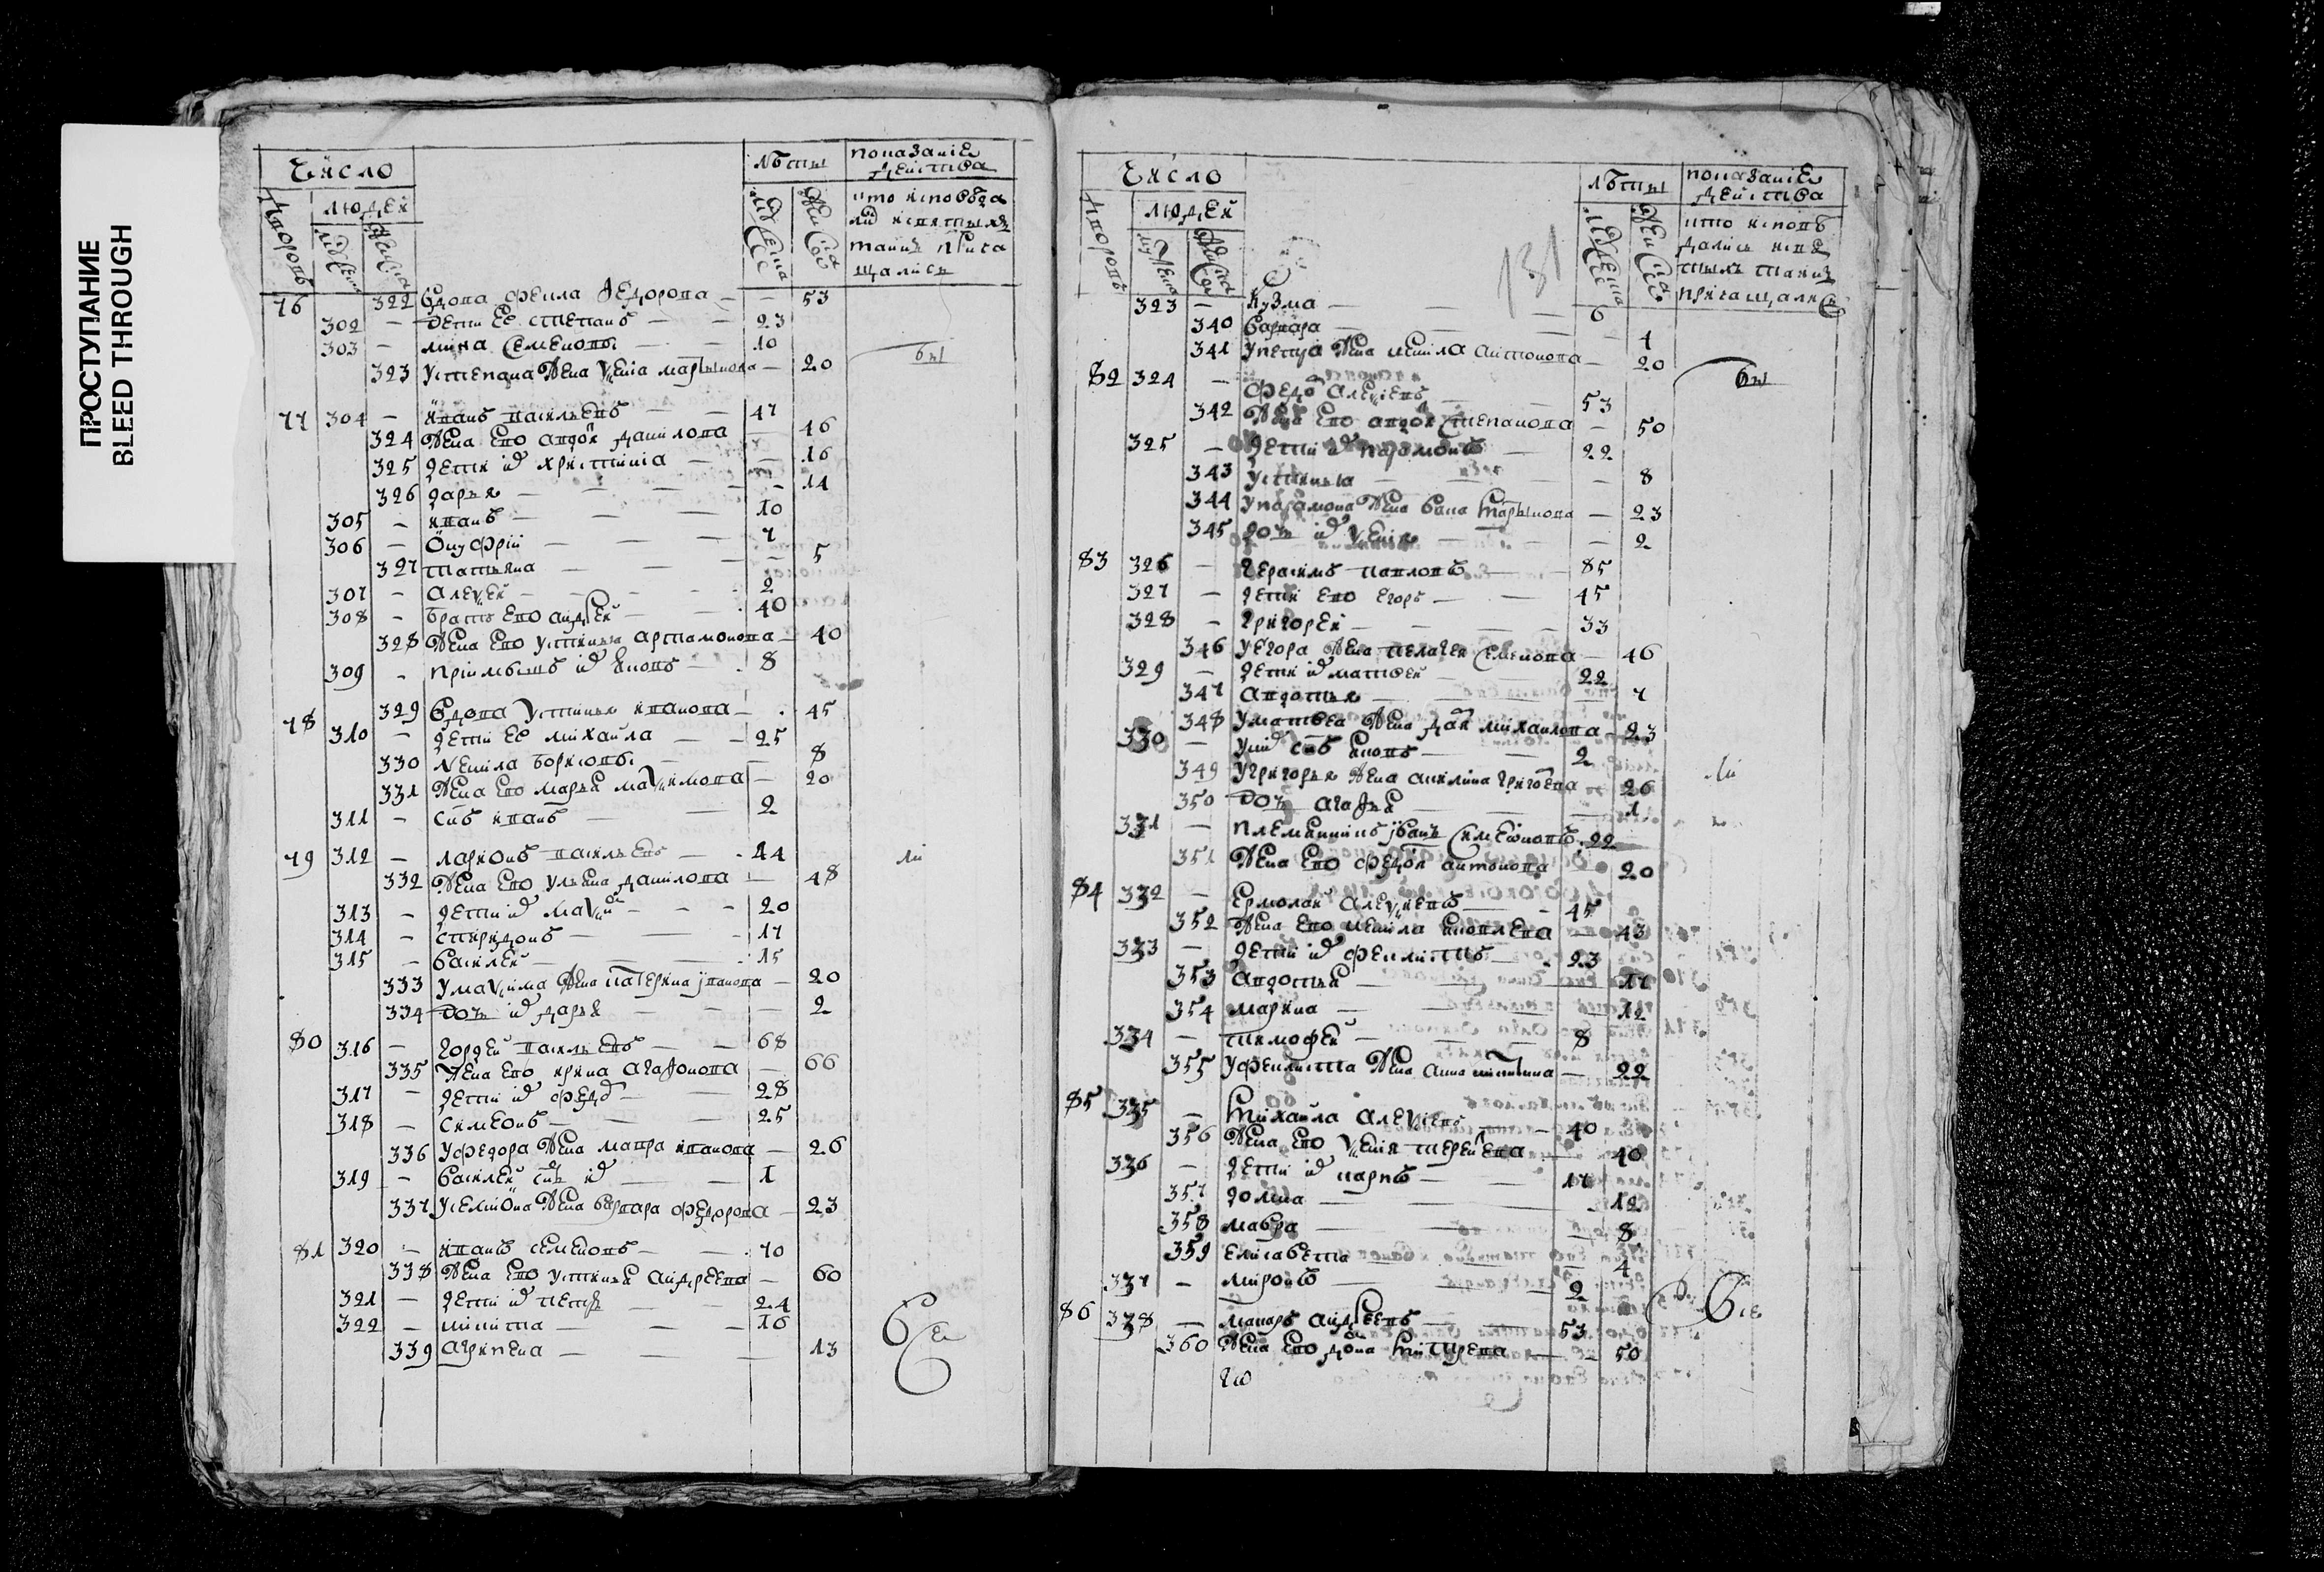 ПРОСТУПАНИЕ
BLEED THROUGH
Число
людей
лѣты
показаніе
действа
что исповѣда
лис и святыхъ
таинъ приča
щались
76 322 вдова Фекла Федорова — — 53
302 — дети ее Степанъ — — 23
303 — мина Семеновы — 10
323 у Степана жена Ксенiа мартынова — 20
77 304 — иванъ васильевъ — — 47
324 жена ево авдотiа данилова — 46
325 дети их христинiа — — 16
326 дарья — — — 14
305 — иванъ — — — 10
306 — Онуфрiй — — — 7
327 татьяна — — — 5
307 — Алексей — — — 2
308 — братъ ево андрей — — 40
328 жена ево устинья артамонова — 40
309 — прiимышъ их яковъ — 8
78 329 вдова устинья иванова — 45
310 — дети ее михайла — — 25
330 некила борисовы — — 8
331 жена ево марья максимова — 20
311 — сынъ иванъ — — 2
79 312 — ларионъ васильевъ — 44
332 жена ево ульяна данилова — 48
313 — дети их максим — — 20
314 — спиридонъ — — 17
315 — василей — — 15
333 у максима жена катерина иванова — 20
334 дочь их дарья — — 2
80 316 — гордей васильевъ — — 68
335 жена ево ирина агафонова — 66
317 — дети их федор — — 28
318 — симеонъ — — 25
336 у федора жена мавра иванова — 26
319 — василей сынъ их — — 1
337 у семiона жена варвара федорова — 23
81 320 — иванъ семеновъ — — 70
338 жена ево устинья андреева — 60
321 — дети их петръ — — 24
322 — никита — — — 16
339 агрипена — — — 13
131
Число
людей
лѣты
показаніе
действа
что исповѣ
дались и свя
тыхъ таинъ
причащались
323 — кузма — — — 6
340 варвара — — — 4
341 у петра жена некила антонова — 20
82 324 — федор алексiевъ — — 53
342 жена ево авдотiа степанова — 50
325 — дети их парамонъ — 22
343 устинья — — — 8
344 у парамона жена васа мартынова — 23
345 дочь их ксения — — 2
83 326 — герасимъ павловъ — — 85
327 — дети ево егоръ — — 45
328 — григорей — — — 33
346 у егора жена пелагея семенова — 46
329 — дети их матвей — — 22
347 авдотья — — — 7
348 у матвея жена дарiа михайлова — 23
330 — у них сынъ яковъ — — 2
349 у григорья жена акилина григоева — 26
350 дочь агафья — — 1
331 — племянникъ иванъ симеоновъ 22
351 жена ево федосiа антонова — 20
84 332 — ермолай алексеевъ — 45
352 жена ево некила яковлева — 43
333 — дети их феклистъ — 23
353 авдотья — — — 17
354 марина — — — 12
334 — тимофей — — — 8
355 у феклиста жена анна никитина — 22
85 335 — михайла алексiевъ — 40
356 жена ево ксения терентева — 40
336 — дети их карпъ — — 17
357 домна — — — 12
358 мавра — — — 8
359 елисавета — — — 4
337 — миронъ — — — 2
86 338 — макаръ андреевъ — 53
360 жена ево домна митрева — 50